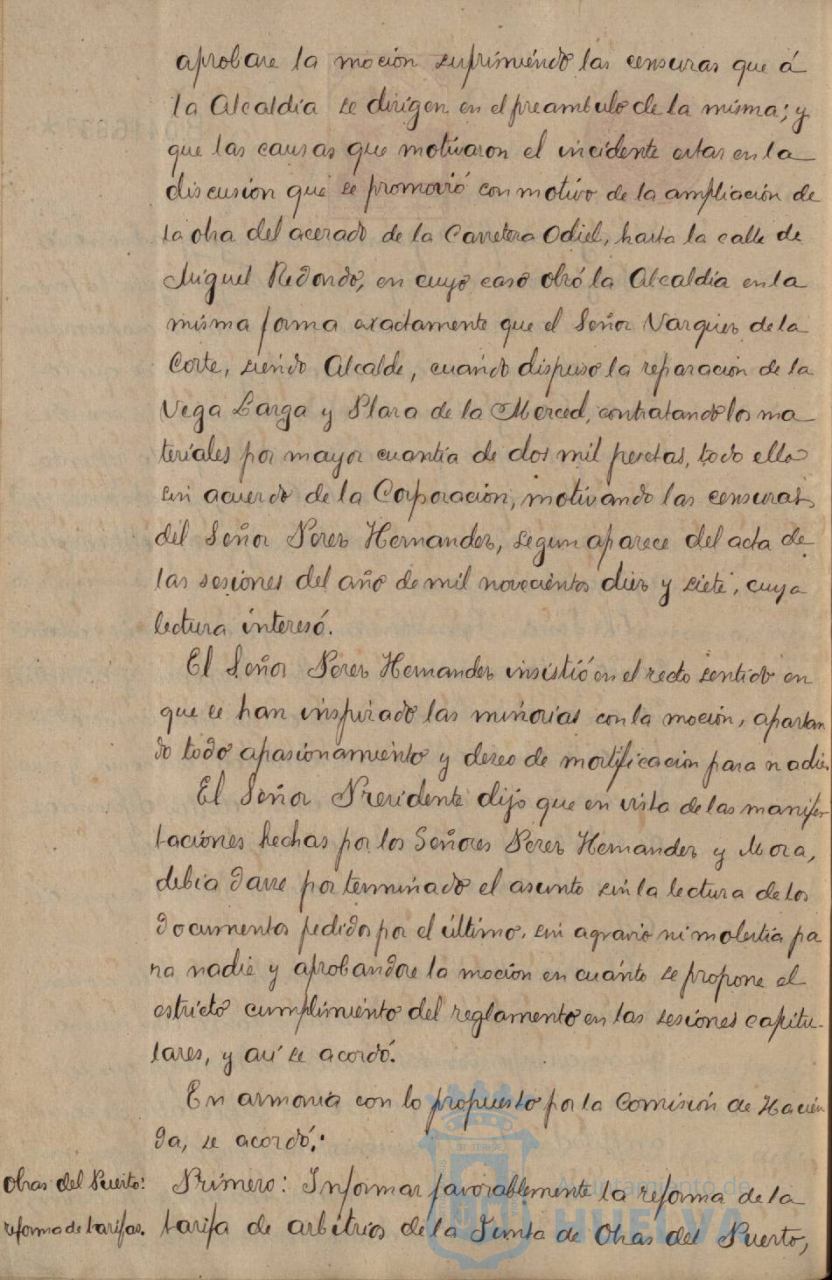 aprobare la moción suprimiéndo las censuras que á
la Alcaldía se dirigen en el preambulo de la misma; y
que las causas que motivaron el incidente estas en la
discusion que se promovió con motivo de la ampliación de
la obra del acerado de la Carretera Odiel, hasta la calle de
Miguel Redondo, en cuyo caso obró la Alcaldía en la
misma forma exactamente que el Señor Vazquez de la
Corte, siendo Alcalde, cuando dispuso la reparación de la
Vega Larga y Plaza de la Merced, contratando los ma
teriales por mayor cuantia de dos mil pesetas, todo ello
sin acuerdo de la Corporación, motivando las censuras
del Señor Perez Hernandez, segun aparece del acta de
las sesiones del año de mil novecientos diez y siete, cuya
lectura interesó.
El Señor Perez Hernandez insistió en el recto sentido en
que se han inspirado las minorias con la moción, apartan
do todo apasionamiento y deseo de mortificación para nadie.
El Señor Presidente dijo que en vista de las manifes-
taciones hechas por los Señores Perez Hernandez y Mora,
debia darse por terminado el asunto sin la lectura de los
documentos pedidos por el último, sin agravio ni molestia pa
ra nadie y aprobandose la moción en cuánto se propone el
estricto cumplimiento del reglamento en las sesiones capitu-
lares, y así se acordó.
En armonia con lo propuesto por la Comisión de Hacien
da, se acordó:
Obras del Puerto: Primero: Informar favorablemente la reforma de la
reforma de tarifas. tarifa de arbitrios de la Junta de Obras del Puerto,
Ayuntamiento de
HUELVA